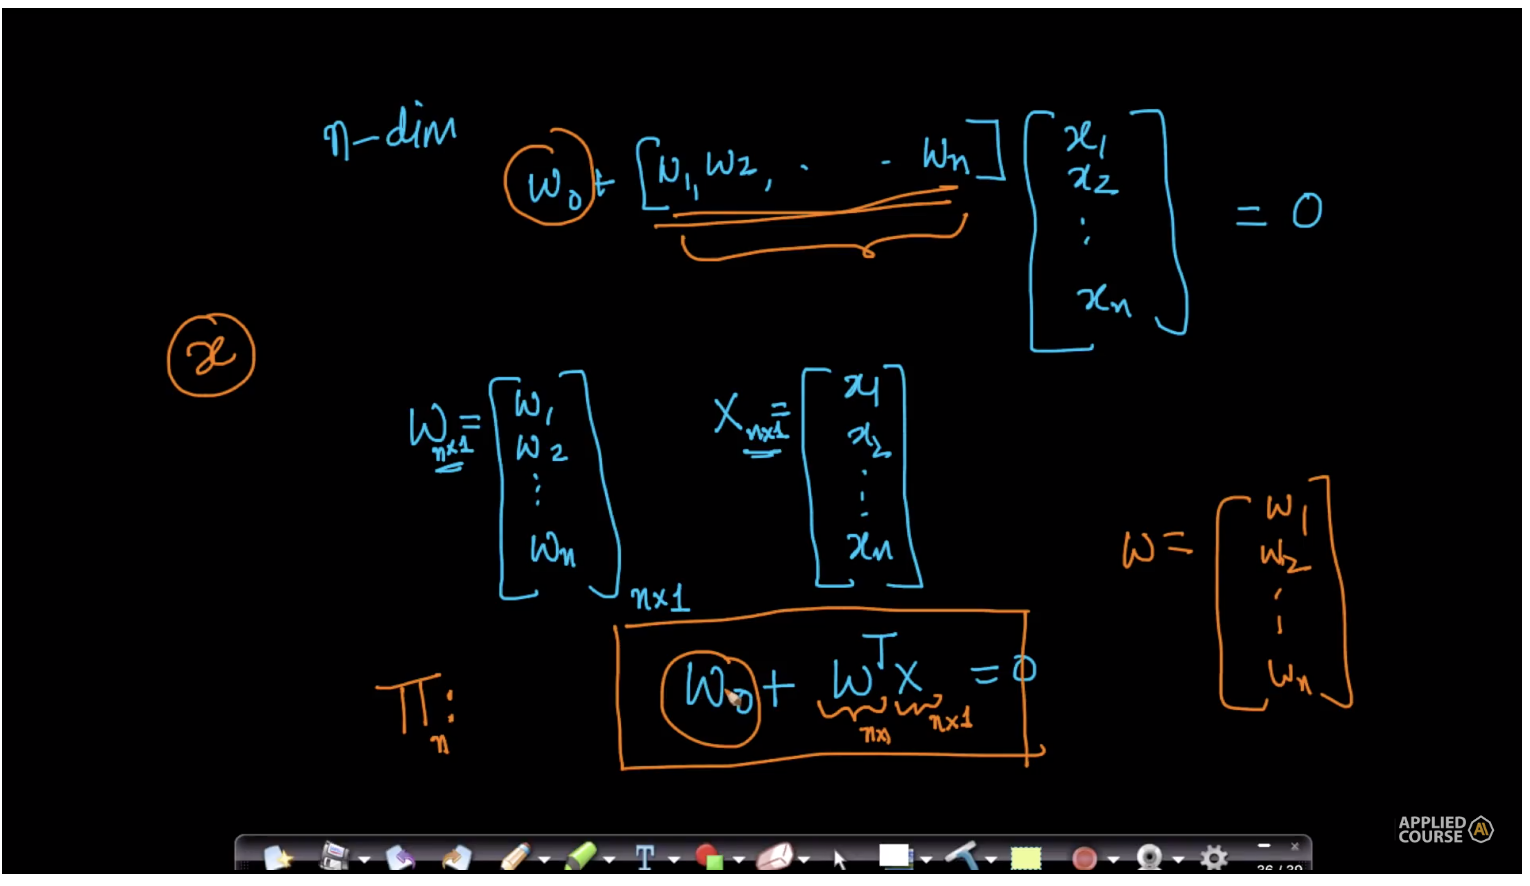 n-dim
w₀ + [w₁, w₂, . . wₙ] [x₁ x₂ ⋮ xₙ] = 0
x
Wₙₓ₁ = [w₁ w₂ ⋮ wₙ]ₙₓ₁
Xₙₓ₁ = [x₁ x₂ ⋮ xₙ]
w = [w₁ w₂ ⋮ wₙ]
πₙ: w₀ + wᵀx = 0
nx1
APPLIED
COURSE AI
T